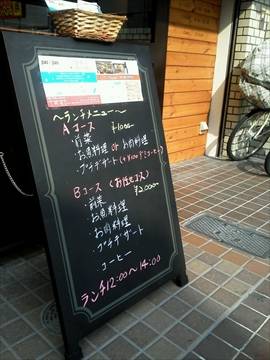 〜ランチメニュー〜
Aコース ¥1000-
・前菜
・お魚料理 or お肉料理
・プチデザート (+¥100でコーヒー)
Bコース (お任せコース)
¥2,000-
・前菜
・お魚料理
・お肉料理
・プチデザート
・コーヒー
ランチ12:00〜14:00